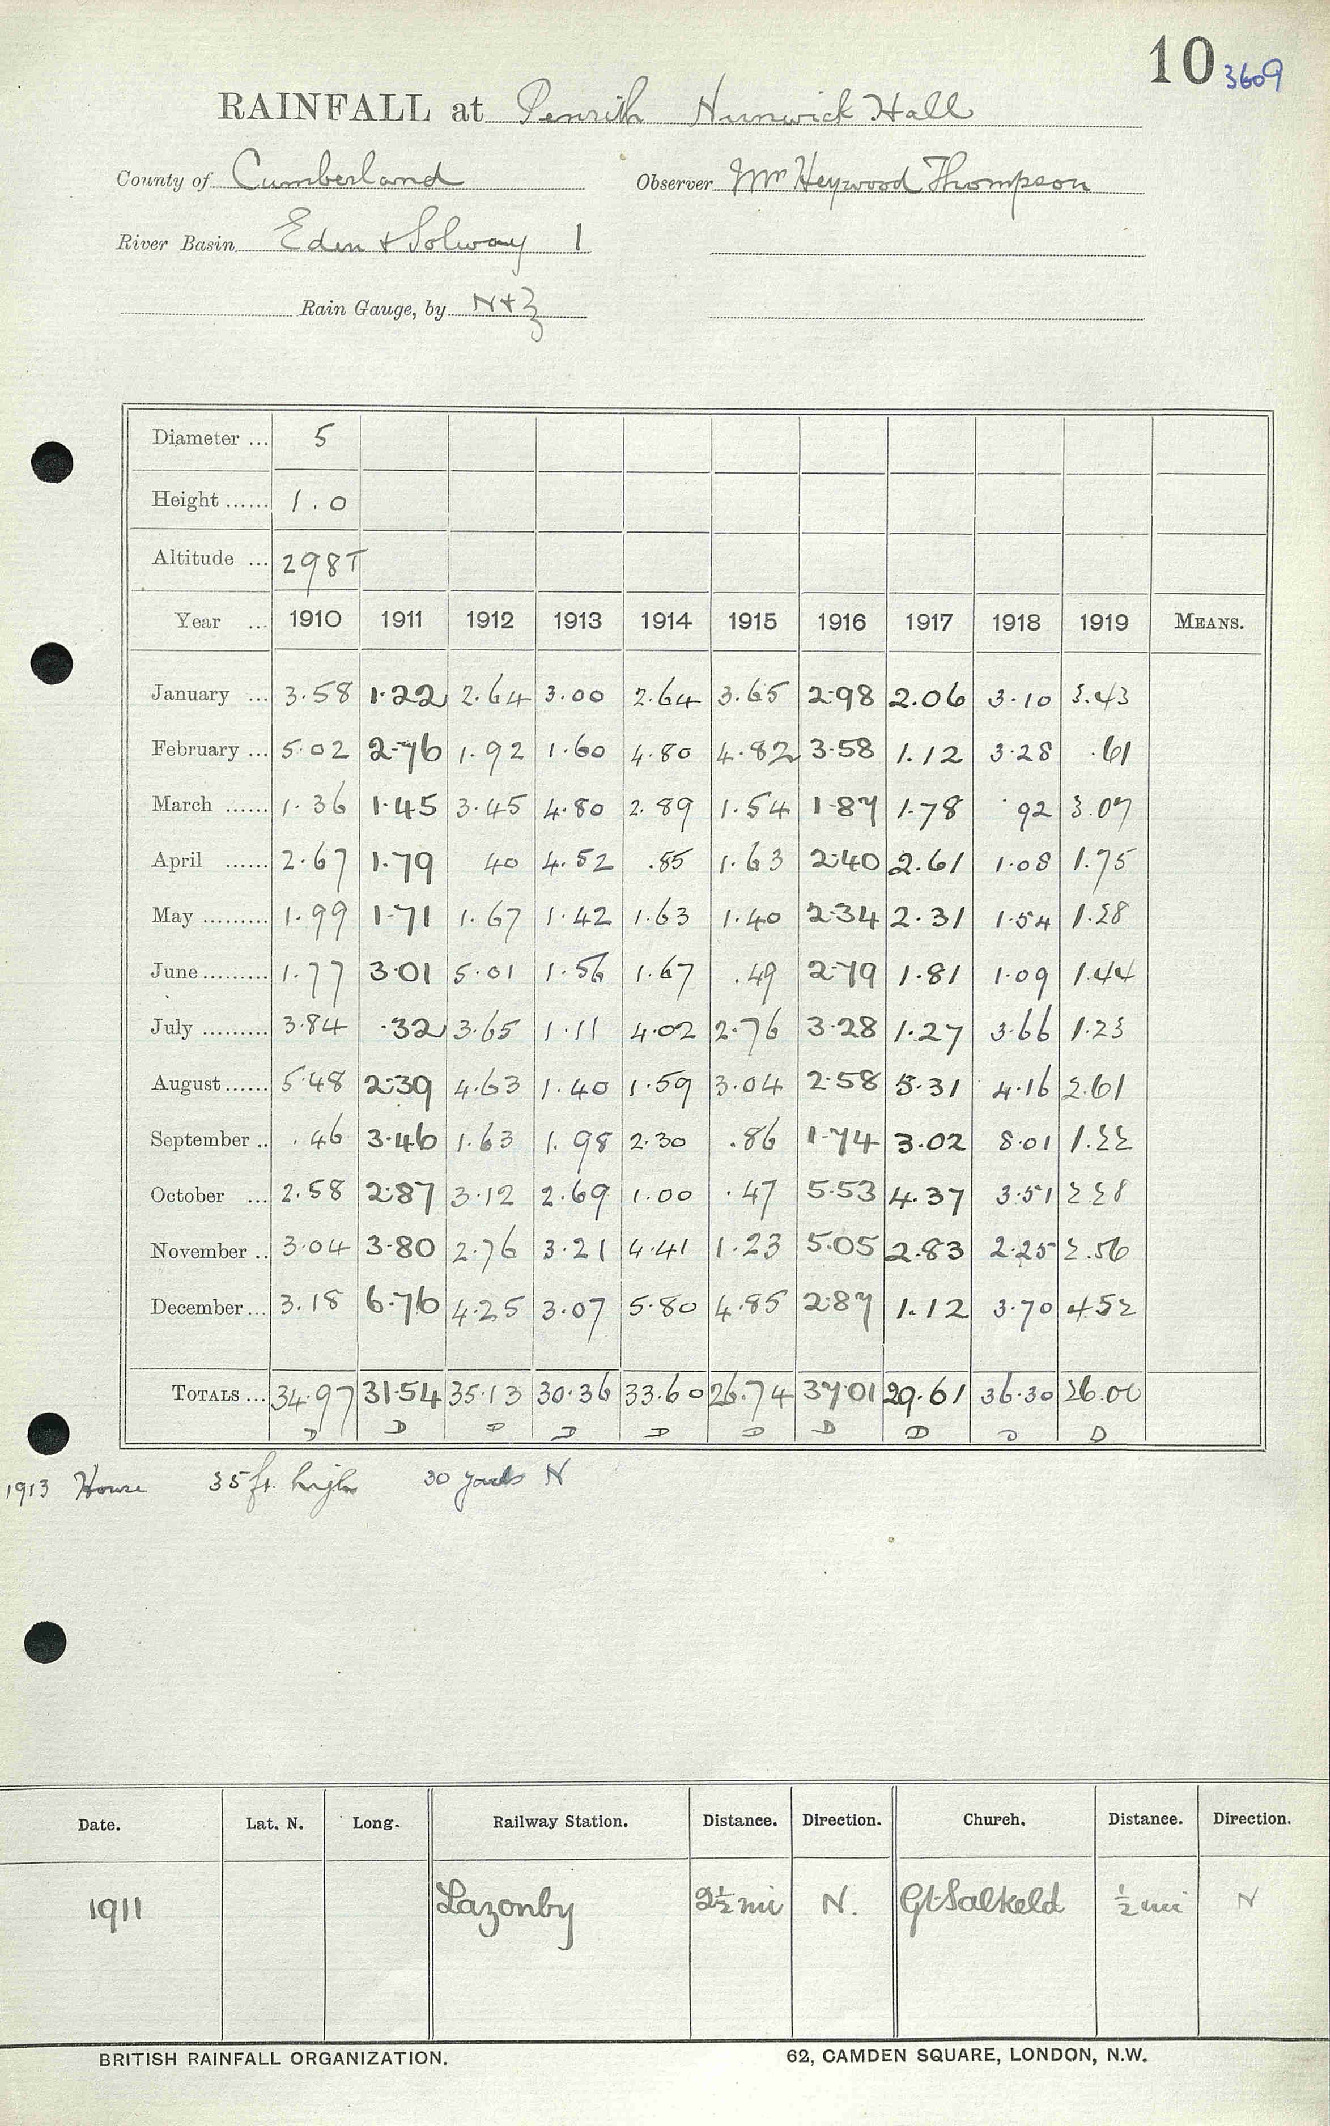 10 3609
RAINFALL at Penrith Nunwick Hall
County of Cumberland Observer Mr Heywood Thompson
River Basin Eden & Solway 1
Rain Gauge, by N+Z
Diameter ... 5
Height ...... 1.0
Altitude ... 298T
Year ... 1910 1911 1912 1913 1914 1915 1916 1917 1918 1919 MEANS.
January ... 3.58 1.22 2.64 3.00 2.64 3.65 2.98 2.06 3.10 3.43
February ... 5.02 2.76 1.92 1.60 4.80 4.82 3.58 1.12 3.28 .61
March ...... 1.36 1.45 3.45 4.80 2.89 1.54 1.87 1.78 .92 3.07
April ...... 2.67 1.79 40 4.52 .85 1.63 2.40 2.61 1.08 1.75
May ......... 1.99 1.71 1.67 1.42 1.63 1.40 2.34 2.31 1.54 1.28
June ......... 1.77 3.01 5.01 1.56 1.67 .49 2.79 1.81 1.09 1.44
July ......... 3.84 .32 3.65 1.11 4.02 2.76 3.28 1.27 3.66 1.23
August ...... 5.48 2.39 4.63 1.40 1.59 3.04 2.58 5.31 4.16 2.61
September .. .46 3.46 1.63 1.98 2.30 .86 1.74 3.02 8.01 1.22
October ... 2.58 2.87 3.12 2.69 1.00 .47 5.53 4.37 3.51 2 28
November .. 3.04 3.80 2.76 3.21 4.41 1.23 5.05 2.83 2.25 2.56
December ... 3.18 6.76 4.25 3.07 5.80 4.85 2.87 1.12 3.70 4.52
TOTALS ... 34.97 31.54 35.13 30.36 33.60 26.74 37.01 29.61 36.30 26.00
D D D D D D D D D D
1913 House 35 ft. high 30 yards N
Date. Lat. N. Long. Railway Station. Distance. Direction. Church. Distance. Direction.
1911 Lazonby 2½ mi N. Gt Salkeld ½ mi N
BRITISH RAINFALL ORGANIZATION. 62, CAMDEN SQUARE, LONDON, N.W.